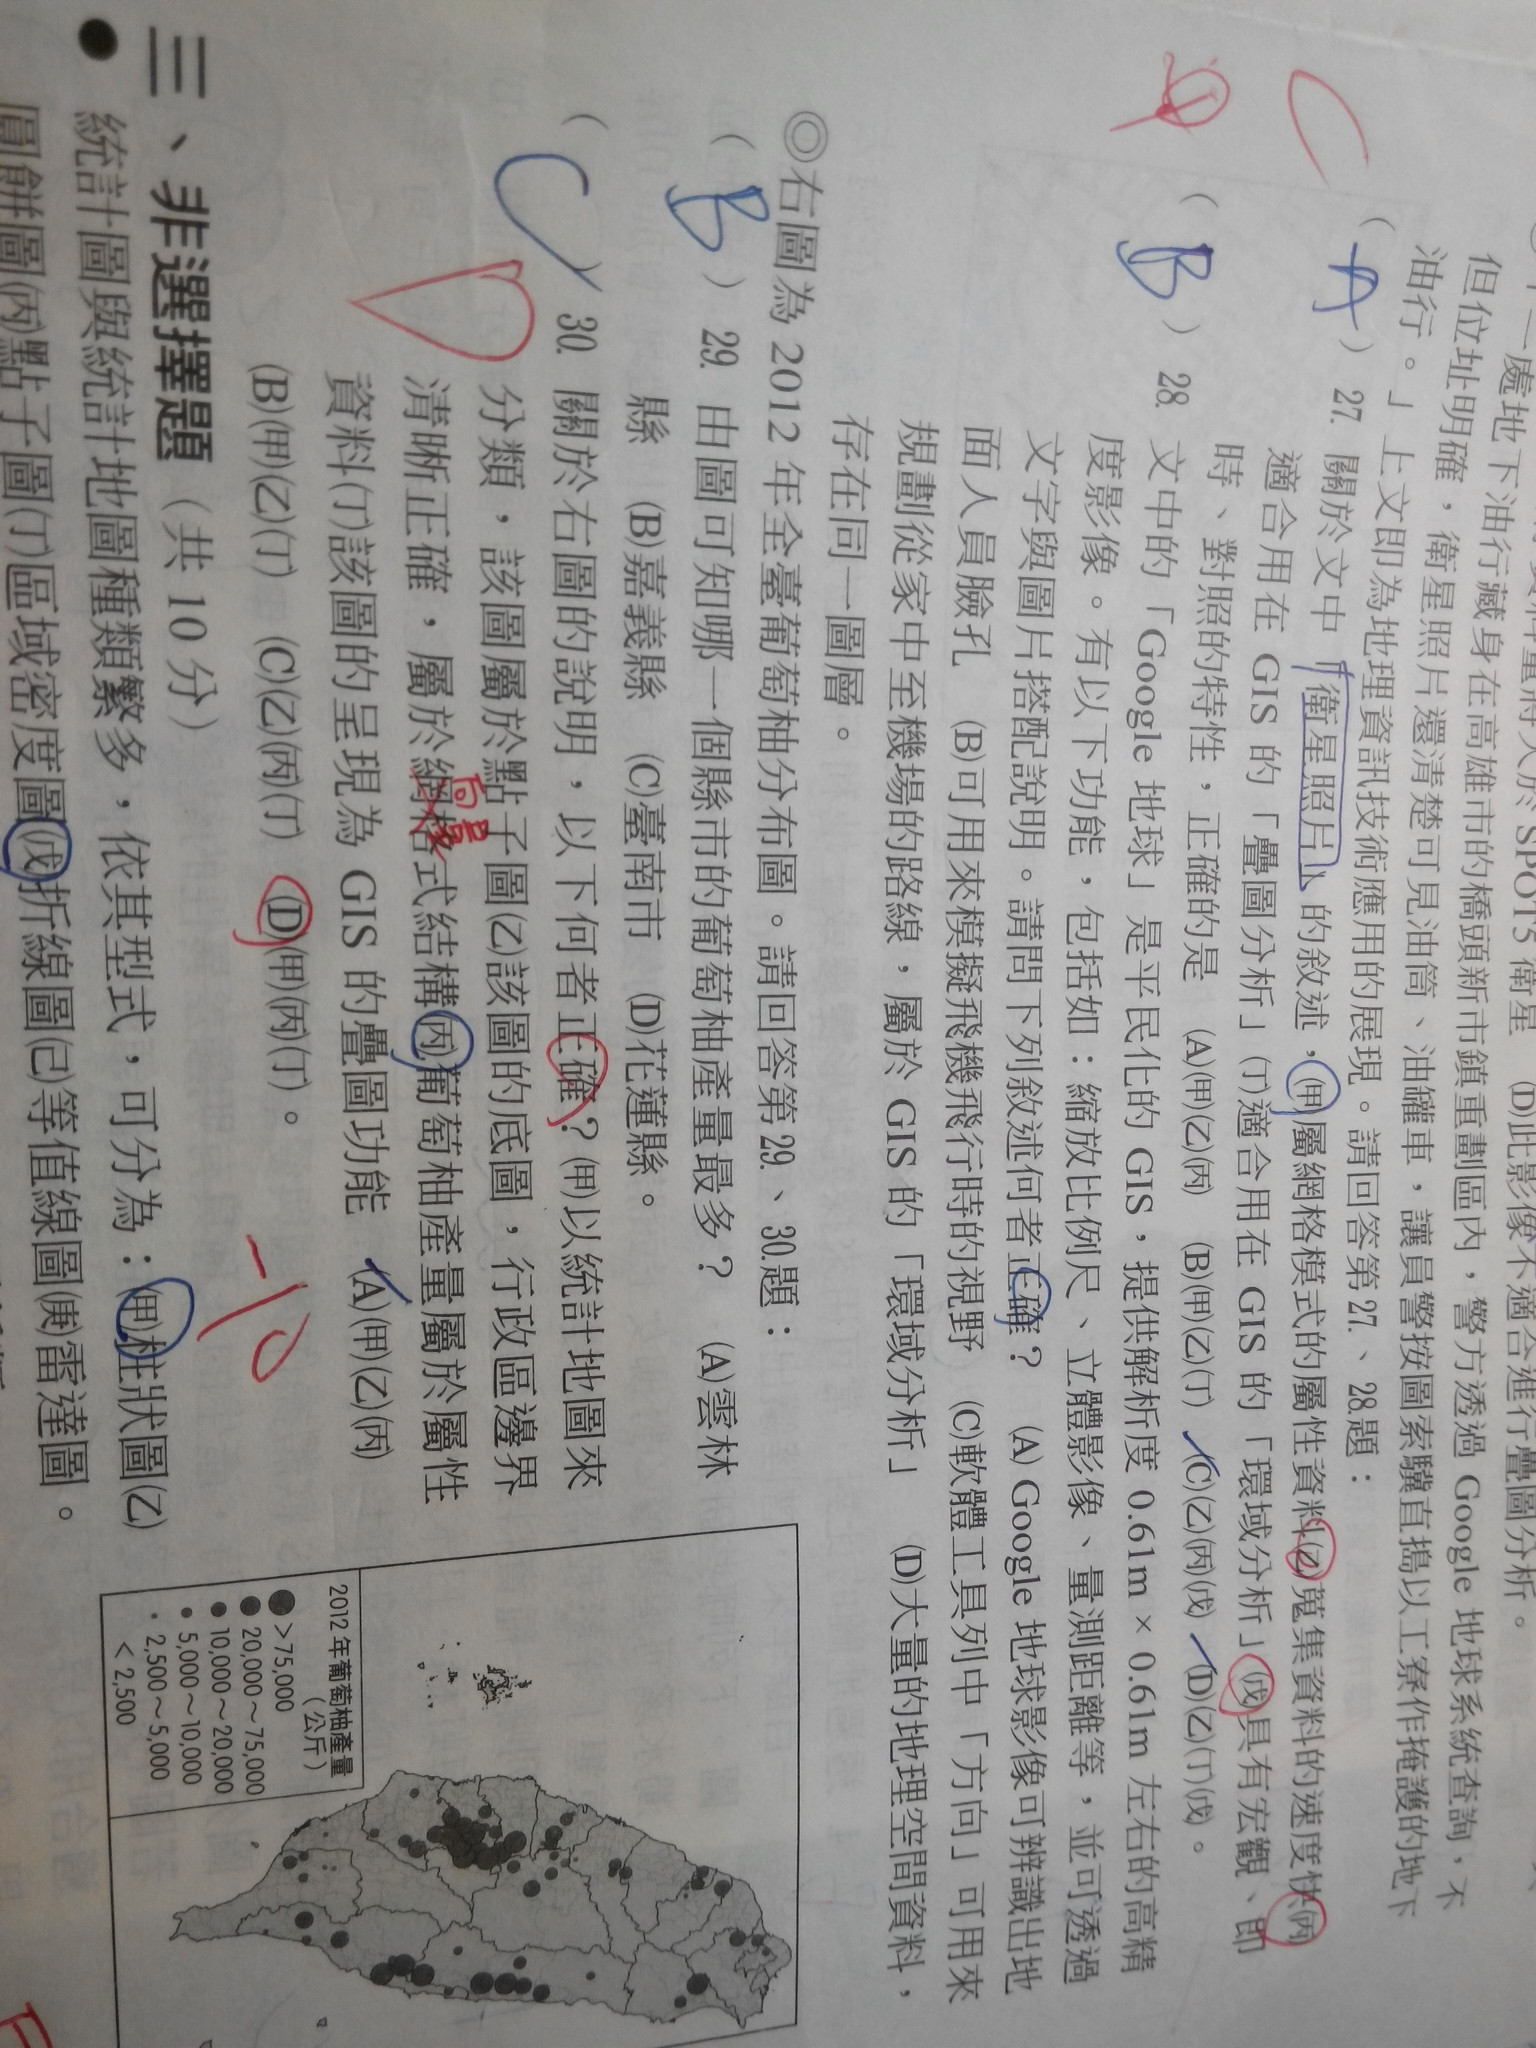 一處地下油行藏身在高雄市的橋頭新市鎮重劃區內，警方透過 Google 地球系統查詢，不
但位址明確，衛星照片還清楚可見油筒、油罐車，讓員警按圖索驥直搗以工寮作掩護的地下
油行。」上文即為地理資訊技術應用的展現。請回答第 27.、28.題：
C
(A) 27. 關於文中「衛星照片」的敘述，(甲)屬網格模式的屬性資料(乙)蒐集資料的速度快(丙)
適合用在 GIS 的「疊圖分析」(丁)適合用在 GIS 的「環域分析」(戊)具有宏觀、即
時、對照的特性，正確的是 (A)(甲)(乙)(丙) (B)(甲)(乙)(丁) (C)(乙)(丙)(戊) (D)(乙)(丁)(戊)。
(B) 28. 文中的「Google 地球」是平民化的 GIS，提供解析度 0.61m × 0.61m 左右的高精
度影像。有以下功能，包括如：縮放比例尺、立體影像、量測距離等，並可透過
文字與圖片搭配說明。請問下列敘述何者正確？ (A) Google 地球影像可辨識出地
面人員臉孔 (B)可用來模擬飛機飛行時的視野 (C)軟體工具列中「方向」可用來
規劃從家中至機場的路線，屬於 GIS 的「環域分析」 (D)大量的地理空間資料，
存在同一圖層。
◎右圖為 2012 年全臺葡萄柚分布圖。請回答第 29.、30.題：
(B) 29. 由圖可知哪一個縣市的葡萄柚產量最多？ (A)雲林
縣 (B)嘉義縣 (C)臺南市 (D)花蓮縣。
(C) 30. 關於右圖的說明，以下何者正確？(甲)以統計地圖來
D
分類，該圖屬於點子圖(乙)該圖的底圖，行政區邊界
清晰正確，屬於網格式結構(丙)葡萄柚產量屬於屬性
向量
資料(丁)該圖的呈現為 GIS 的疊圖功能 (A)(甲)(乙)(丙)
(B)(甲)(乙)(丁) (C)(乙)(丙)(丁) (D)(甲)(丙)(丁)。
-10
2012 年葡萄柚產量
（公斤）
>75,000
20,000～75,000
10,000～20,000
5,000～10,000
2,500～5,000
< 2,500
三、非選擇題（共 10 分）
● 統計圖與統計地圖種類繁多，依其型式，可分為：(甲)柱狀圖(乙)
圓餅圖(丙)點子圖(丁)區域密度圖(戊)折線圖(己)等值線圖(庚)雷達圖。